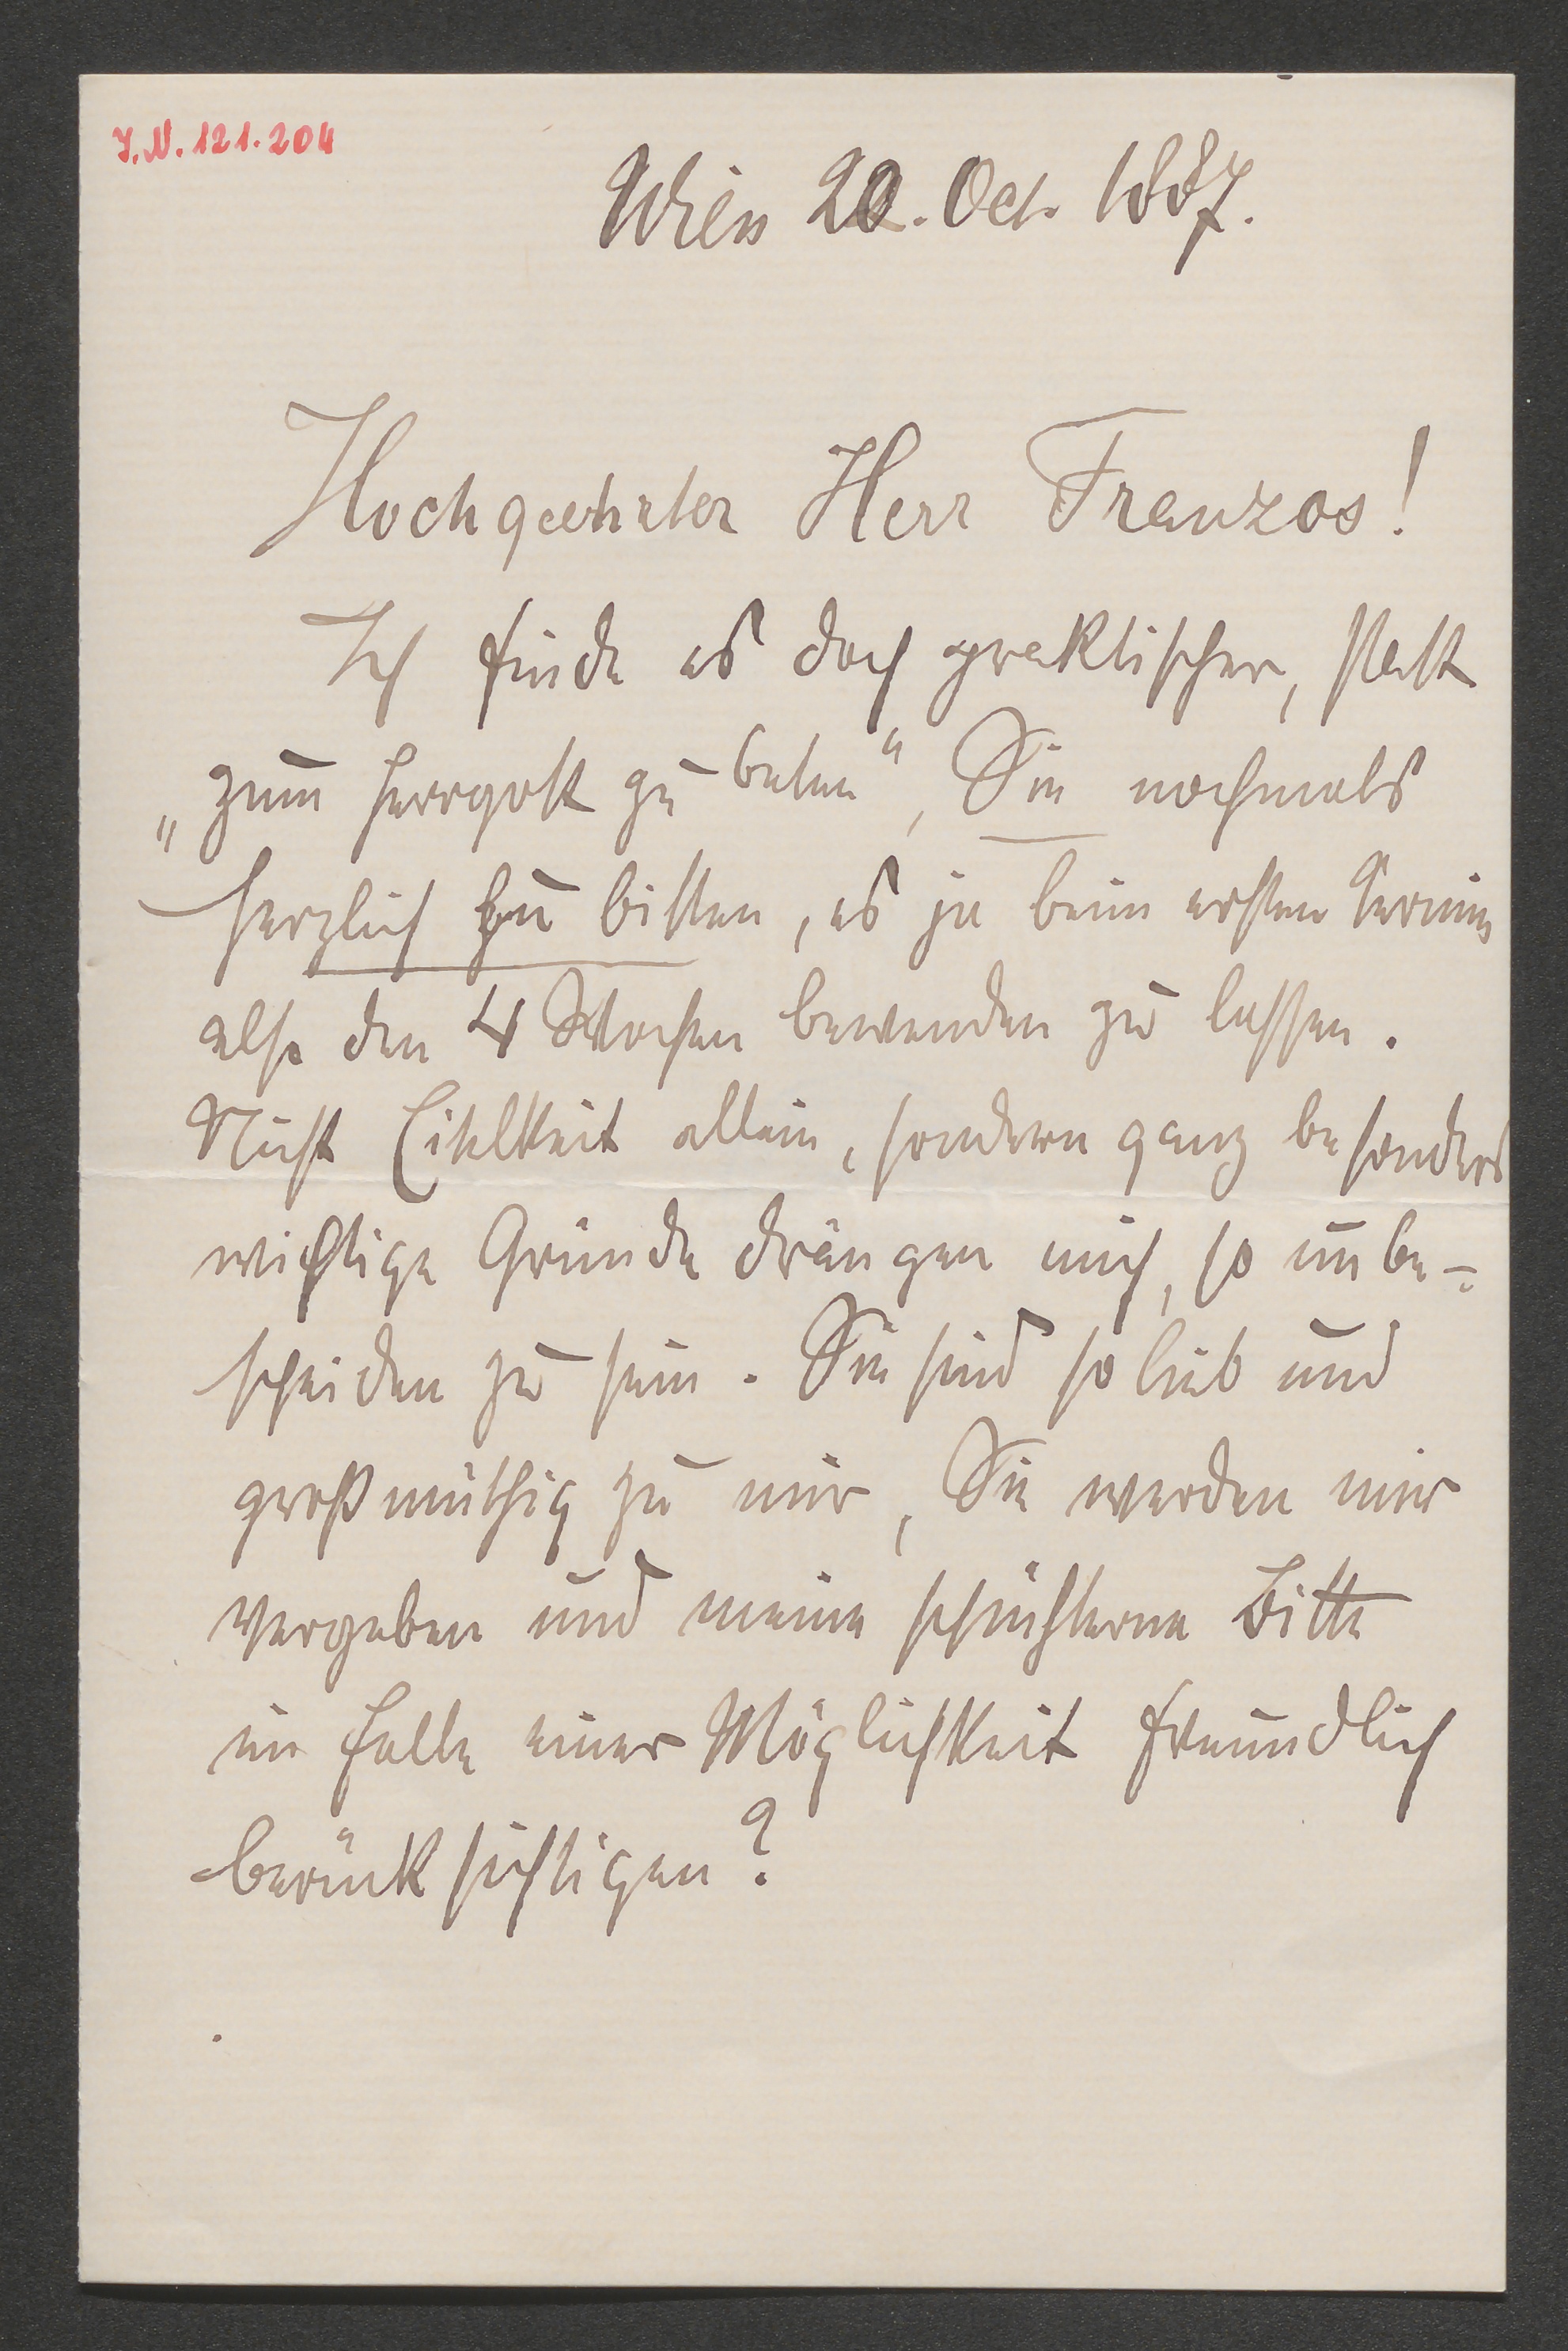 I.N. 121.204
Wien 20. Oct. 1887.
Hochgeehrter Herr Franzos!
Ich finde es doch praktischer, statt
„zum Herrgott zu beten", Sie nochmals
herzlich zu bitten, es ja beim ersten Termin
also den 4 Wochen bewenden zu lassen.
Nicht Eitelkeit allein, sondern ganz besonders
wichtige Gründe drängen mich, so unbe-
scheiden zu sein. Sie sind so lieb und
großmüthig zu mir, Sie werden mir
vergeben und meine schüchterne Bitte
im Falle einer Möglichkeit freundlich
berücksichtigen?